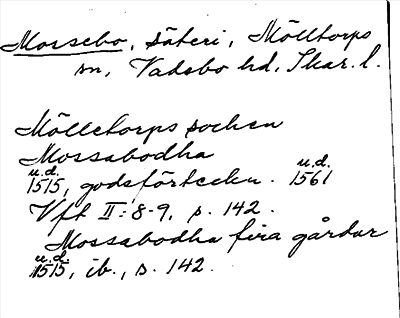 Mossebo, säteri, Mölltorps
sn, Vadsbo hd, Skar. l.
Mölletorps sochen
Mossabodha
u.d. u.d.
1515, godsförteckn. 1561
Vft II: 8-9, s. 142.
Mossabodha fira gårdar
u.d.
1515, ib., s. 142.